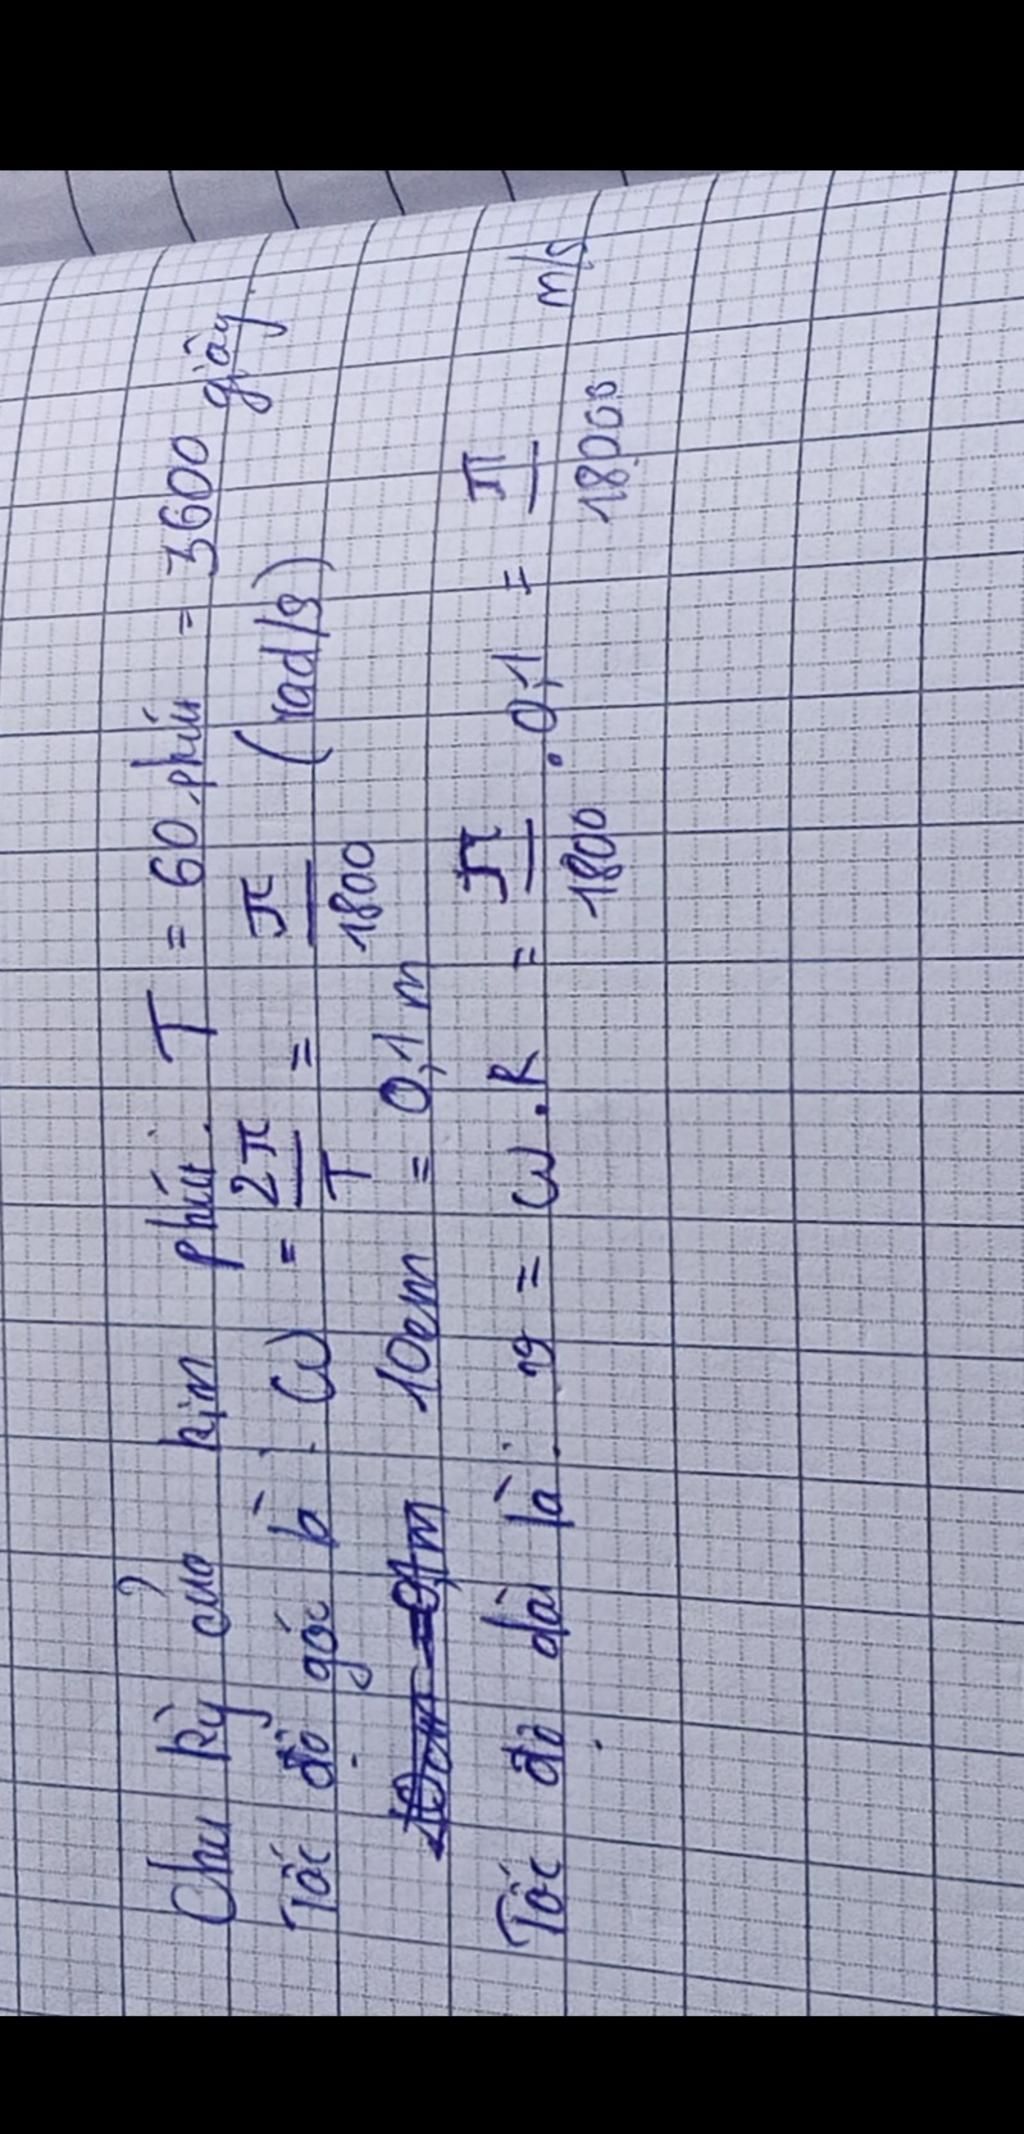 Chu kỳ của kim phút. T = 60 phút = 3600 giây.
Tốc độ góc là: ω = 2π/T = π/1800 (rad/s)
10cm = 0,1 m
Tốc độ dài là: v = ω.R = π/1800 . 0,1 = π/18000 m/s